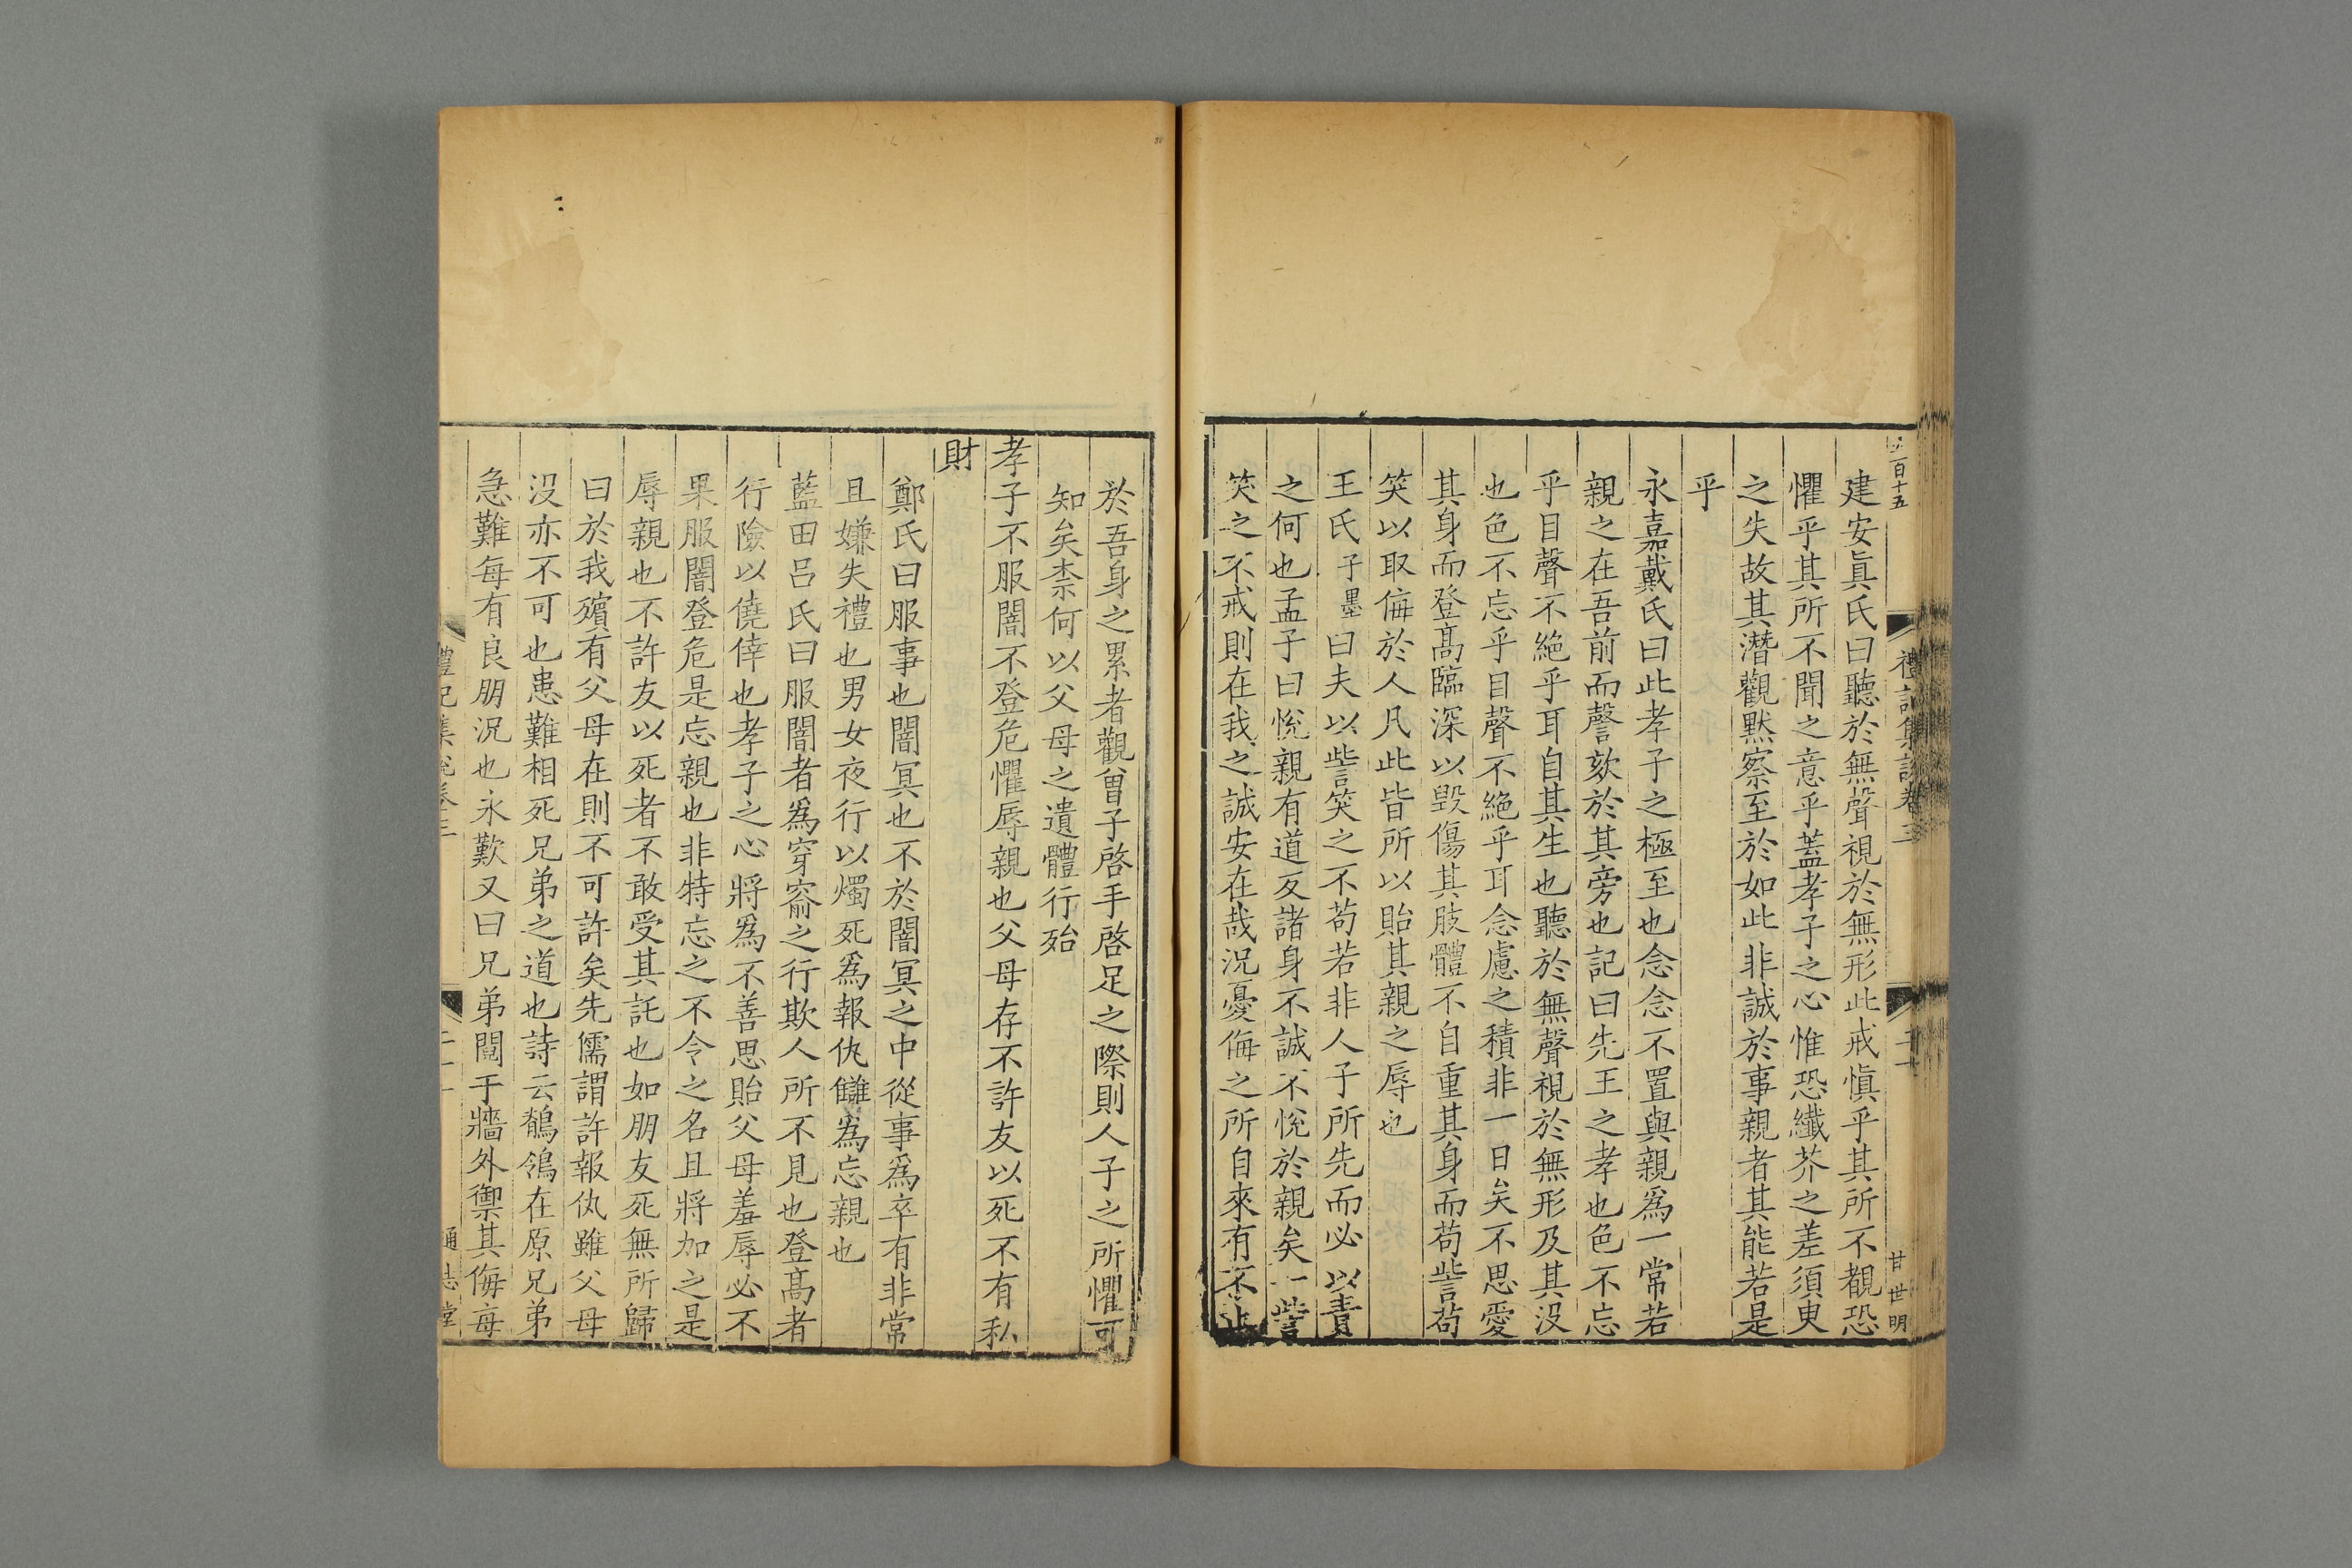 建安眞氏曰聽於無聲視於無形此戒愼乎其所不覩恐
懼乎其所不聞之意乎蓋孝子之心惟恐纖芥之差須臾
之失故其潛觀默察至於如此非誠於事親者其能若是
乎
永嘉戴氏曰此孝子之極至也念念不置與親爲一常若
親之在吾前而謦欬於其旁也記曰先王之孝也色不忘
乎目聲不絶乎耳自其生也聽於無聲視於無形及其没
也色不忘乎目聲不絶乎耳念慮之積非一日矣不思愛
其身而登髙臨深以毁傷其肢體不自重其身而苟訾苟
笑以取侮於人凡此皆所以貽其親之辱也
王氏子墨曰夫以訾笑之不苟若非人子所先而必以責
之何也孟子曰悅親有道反諸身不誠不悅於親矣一訾
笑之不戒則在我之誠安在哉況憂侮之所自來有不止
禮記集說卷三
二十
甘世明
於吾身之累者觀曾子啓手啓足之際則人子之所懼可
知矣柰何以父母之遺體行殆
孝子不服闇不登危懼辱親也父母存不許友以死不有私
財
鄭氏曰服事也闇冥也不於闇冥之中從事爲卒有非常
且嫌失禮也男女夜行以燭死爲報仇讎爲忘親也
藍田吕氏曰服闇者爲穿窬之行欺人所不見也登髙者
行險以僥倖也孝子之心將爲不善思貽父母羞辱必不
果服闇登危是忘親也非特忘之不令之名且將加之是
辱親也不許友以死者不敢受其託也如朋友死無所歸
曰於我殯有父母在則不可許矣先儒謂許報仇雖父母
没亦不可也患難相死兄弟之道也詩云鶺鴒在原兄弟
急難每有良朋況也永歎又曰兄弟鬩于牆外禦其侮每
禮記集說卷三
通志堂